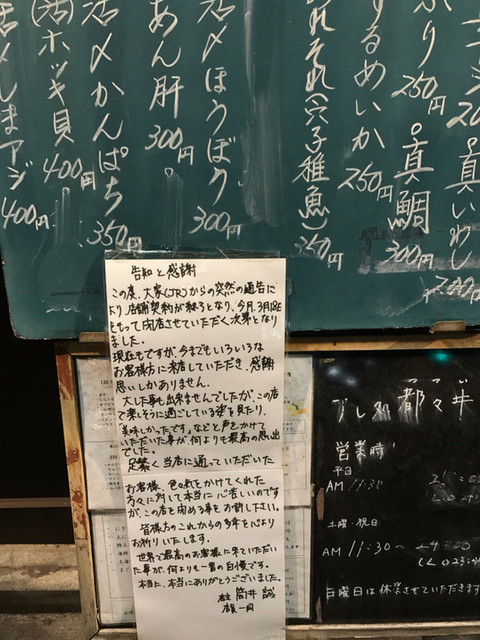 。真いわし
200円
。真鯛
300円
250円
するめいか
250円
のれそれ(穴子稚魚)
350円
活〆ほうぼう
300円
あん肝
300円
活〆かんぱち
350円
(活)ホッキ貝
400円
活〆しまアジ
400円
告知と感謝
この度、大家(JR)からの突然の通告に
より、店舗契約が終了となり、今月、3月18日
をもって閉店させていただく次第となり
ました。
現在もですが、今までもいろいろな
お客様方に来店していただき、感謝
思いしかありません。
大した事も出来ませんでしたが、この店
で楽しそうに過ごしている姿を見たり、
「美味しかったです」などと声をかけて
いただいた事が、何よりも最高の思い出
でした。
足繁く当店に通っていただいた
お客様、色々気をかけてくれた
方々に対して本当に心苦しいのです
が、この店を閉める事をお許し下さい。
皆様方のこれからの多幸を心より
お祈りいたします。
世界で最高のお客様に来ていただい
た事が、何よりも一番の自慢です。
本当に、本当にありがとうございました。
店主 筒井 誠
店員一同
すし処 都々井
営業時
平日
AM 11:30
土曜・祝日
AM 11:30〜
日曜日は休業させていただきます